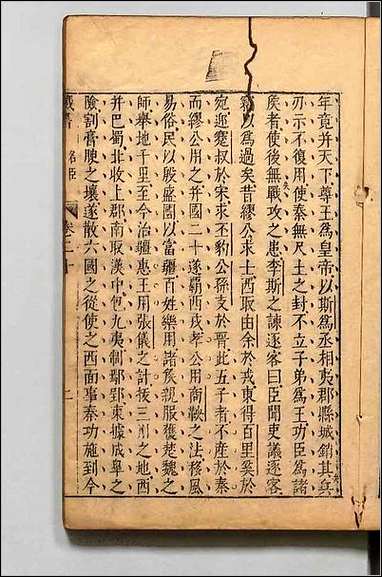 年竟并天下尊王為皇帝以斯為丞相夷郡縣城銷其兵
刃示不復用使秦無尺土之封不立子弟為王功臣為諸
矦者使後無戰攻之患李斯之諫逐客曰臣聞吏議逐客
竊以為過矣昔繆公求士西取由余於戎東得百里奚於
宛迎蹇叔於宋求丕豹公孫支於晉此五子者不產於秦
而繆公用之并國二十遂覇西戎孝公用商鞅之法移風
易俗民以殷盛國以富彊百姓樂用諸矦親服獲楚魏之
師舉地千里至今治彊惠王用張儀之計拔三川之地西
并巴蜀北收上郡南取漢中包九夷制鄢郢東據成皋之
險割膏腴之壤遂散六國之從使之西面事秦功施到今
藏書 名臣 二